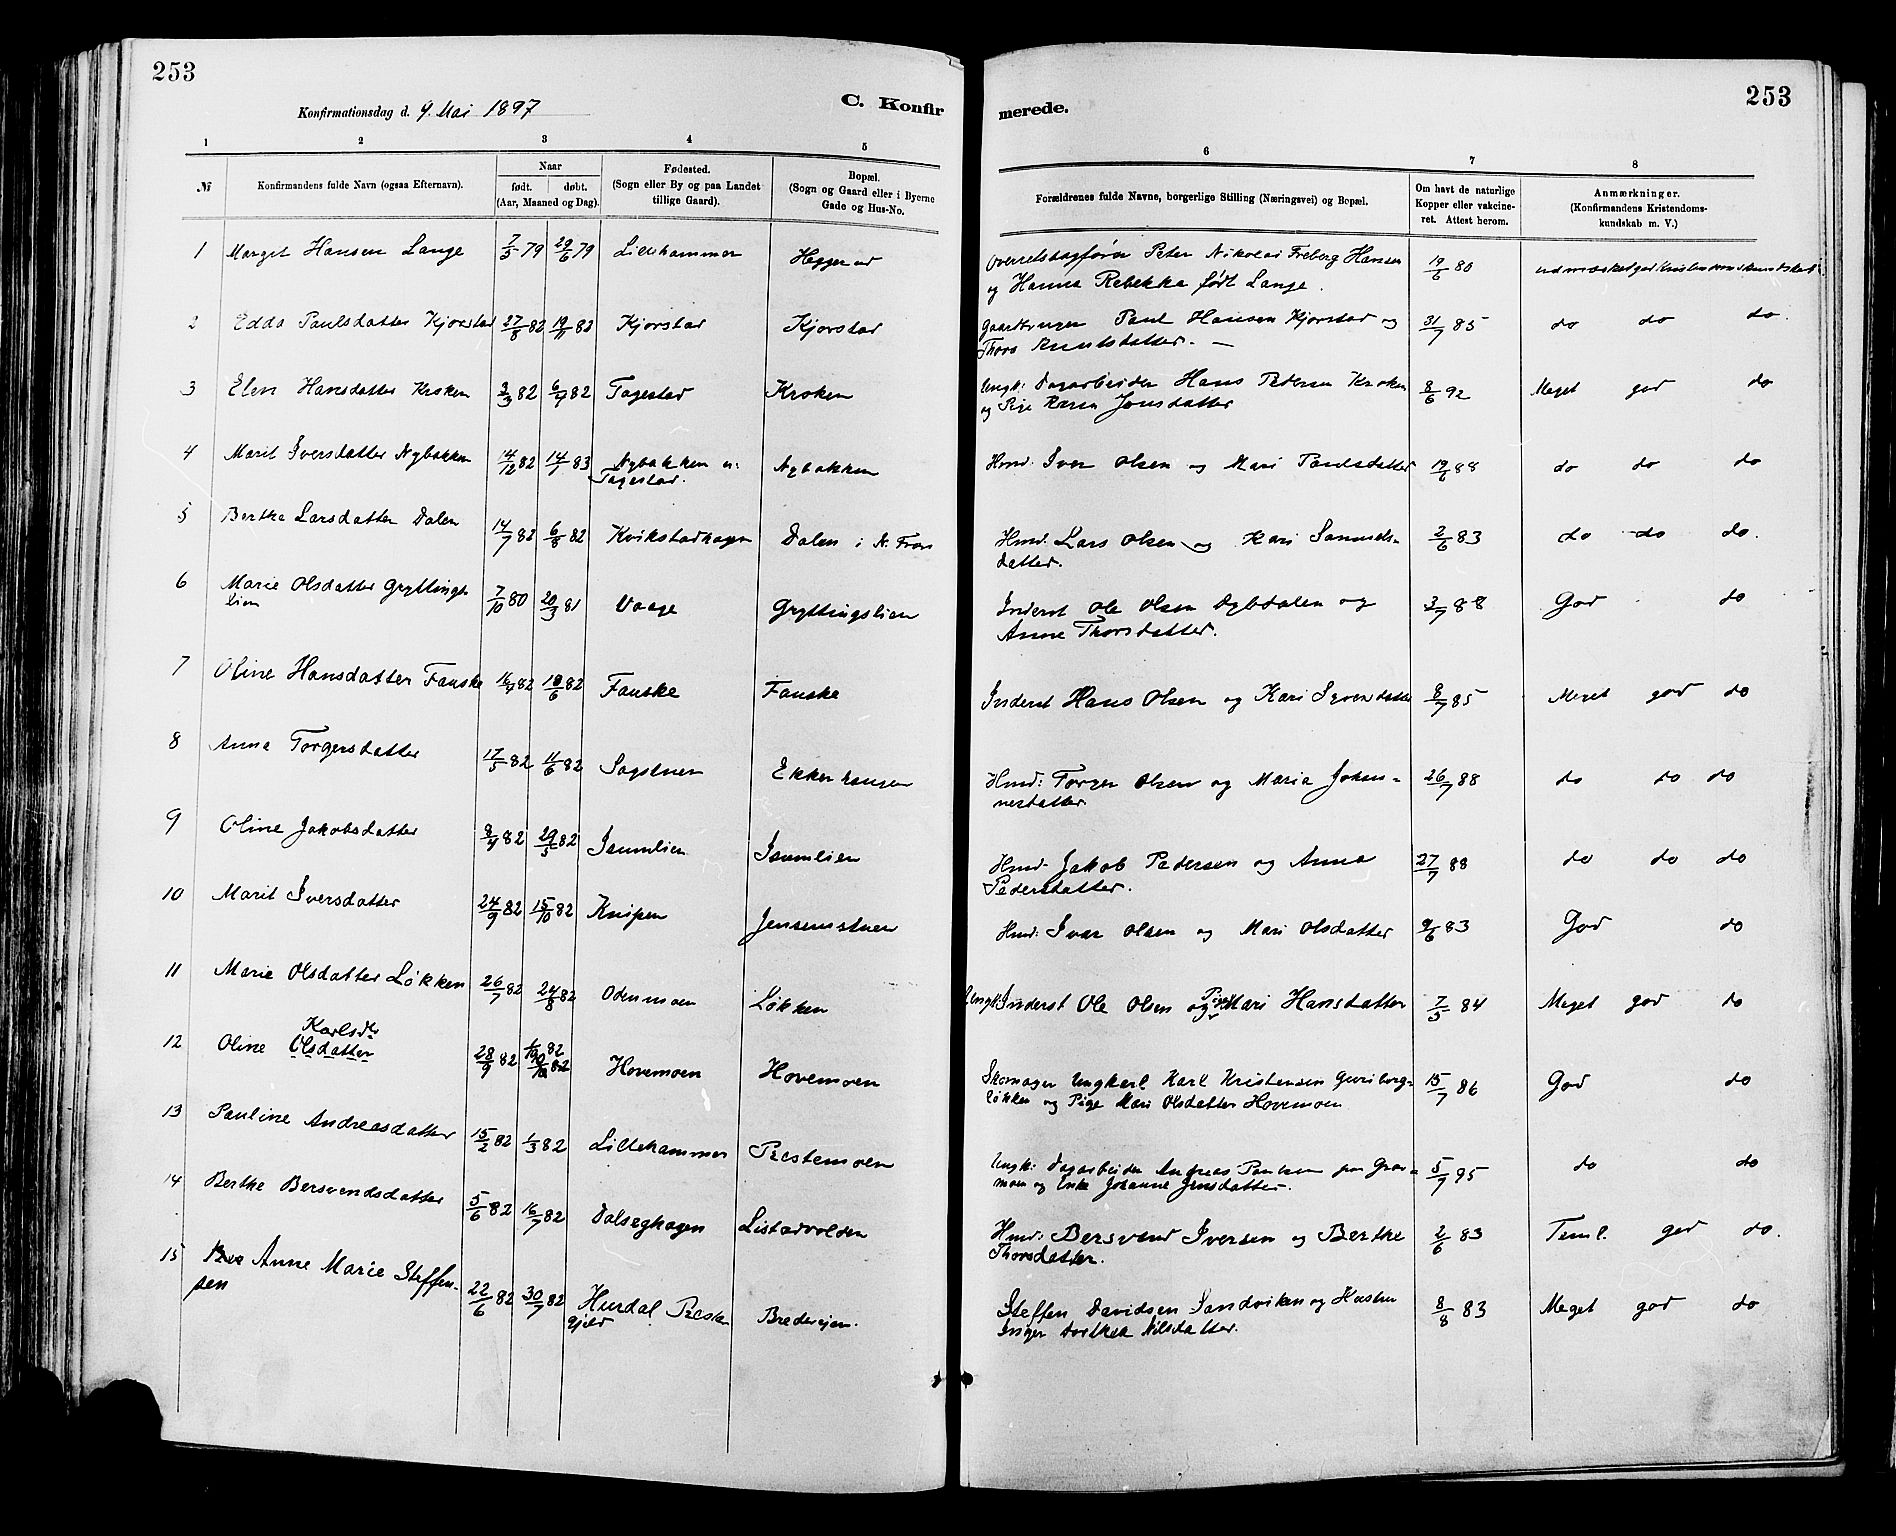 253
253
Konfirmationsdag d. 9. Mai 1897
C. Konfir
merede.
1 2 3 4 5 6 7 8
№
Konfirmandens fulde Navn (ogsaa Efternavn).
Naar
født. døbt.
(Aar, Maaned og Dag).
Fødested.
(Sogn eller By og paa Landet
tillige Gaard).
Bopæl.
(Sogn og Gaard eller i Byerne
Gade og Hus-No.
Forældrenes fulde Navne, borgerlige Stilling (Næringsvei) og Bopæl.
Om havt de naturlige
Kopper eller vakcine-
ret. Attest herom.
Anmærkninger.
(Konfirmandens Kristendoms-
kundskab m. V.)
1 Margit Hansen Lange 7/5 79 29/6 79 Lillehammer Heggerud Overretssagfører Peter Nikolai Freberg Hansen 19/6 80 udmærket god Kristendomskundskab
og Hanna Rebekka født Lange.
2 Edda Paulsdatter Kjorstad 27/8 82 19/11 82 Kjorstad Kjorstad Gaardbruger Paul Hansen Kjorstad og 31/7 85 do do do.
Thora Knutsdatter. —
3 Elen Hansdatter Kroken 3/3 82 6/7 82 Tagestad Kroken Ungk: Dagarbeider Hans Pedersen Kroken 8/6 92 Meget god do
og Pige Karen Jonsdatter
4 Marit Iversdatter Nybakken 14/12 82 14/1 83 Nybakken u: Nybakken Hmd: Iver Olsen og Mari Paulsdatter 19/6 88 do do do
Tagestad.
5 Berthe Larsdatter Dalen 14/7 82 6/8 82 Kvikstadhagen Dalen i N. Fron Hmd: Lars Olsen og Kari Samuels-
datter. 2/6 83 do do do.
6 Marie Olsdatter Gryttings-
lien 7/10 80 20/3 81 Vaage Gryttingslien Inderst Ole Olsen Dybdalen og 3/7 88 God do
Anne Thorsdatter.
7 Oline Hansdatter Fauske 16/4 82 18/6 82 Fauske Fauske Inderst Hans Olsen og Kari Iversdatter 8/7 85 Meget god do
8 Anne Torgersdatter 17/5 82 11/6 82 Sagstuen Ekkerhaugen Hmd: Torger Olsen og Maria Johan-
nesdatter 26/7 88 do do do
9 Oline Jakobsdatter 8/4 82 29/5 82 Isumlien Isumlien Hmd: Jakob Pedersen og Anna 27/7 88 do do do
Pedersdatter.
10 Marit Iversdatter 24/9 82 15/10 82 Knipen Jensenstuen Hmd: Ivar Olsen og Mari Olsdatter 9/6 83 God do
11 Marie Olsdatter Løkken 26/7 82 24/8 82 Odenmoen Løkken Ungk: Inderst Ole Olsen og Pige Mari Hansdatter 7/5 84 Meget god do
Karlsdtr
12 Oline Olsdatter 28/9 82 82 Hovemoen Hovemoen Skomager Ungkarl Karl Kristensen Guriborg- 15/7 86 God do
løkken og Pige Mari Olsdatter Hovemoen
13 Pauline Andreasdatter 15/2 82 1/3 82 Lillehammer Prestemoen Ungk: Dagarbeider Andreas Paulsen paa 5/7 95 do do
moen og Enke Johanne Jensdatter.
14 Berthe Bersvendsdatter 5/6 82 16/7 82 Dalseghagen Listadvolden Hmd: Bersvend Iversen og Berthe 2/6 83 Teml. god do.
Thorsdatter.
15 Anne Marie Steffen-
sen 22/6 82 30/7 82 Hurdal Preste- Bredevejen. Steffen Davidsen Sandviken og Hustru 8/8 83 Meget god do
gjeld Inger Dorthea Nilsdatter.